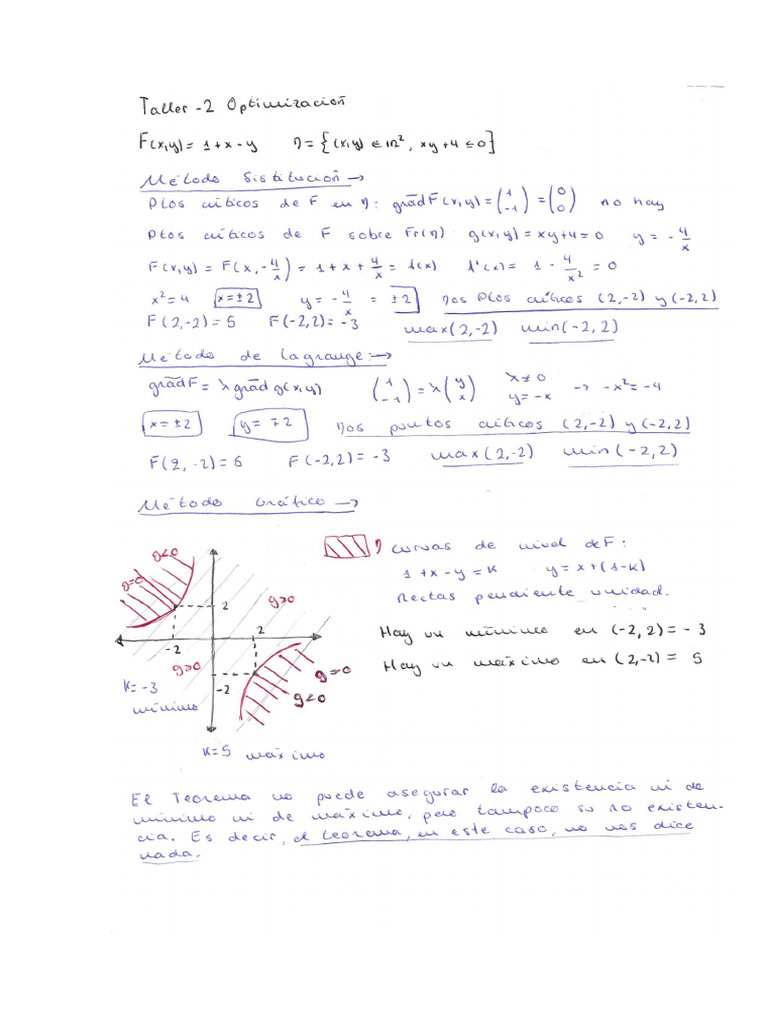 Taller -2 Optimización
F(x,y) = 1+x-y η = {(x,y) ∈ IR², xy+4 ≤ 0}
Método Sistitución →
Ptos críticos de F en η: grad F(x,y) = (1 -1) = (0 0) no hay
Ptos críticos de F sobre Fr(η) g(x,y) = xy+4 = 0 y = -4/x
F(x,y) = F(x, -4/x) = 1+x+4/x = l(x) l'(x) = 1 - 4/x² = 0
x² = 4 x = ±2 y = -4/x = ±2 Dos Ptos críticos (2,-2) y (-2,2)
F(2,-2) = 5 F(-2,2) = -3 max(2,-2) min(-2,2)
Método de Lagrange: →
grad F = λ grad g(x,y) (1 -1) = λ (y x) λ≠0 y=-x → -x² = -4
x = ±2 y = ∓2 Dos puntos críticos (2,-2) y (-2,2)
F(2,-2) = 5 F(-2,2) = -3 max(2,-2) min(-2,2)
Método Gráfico →
η curvas de nivel de F:
1+x-y = K y = x+(1-K)
Rectas pendiente unidad.
Hay un mínimo en (-2,2) = -3
Hay un máximo en (2,-2) = 5
g<0
g=0
g>0
2
2
-2
g>0
-2
g=0
g<0
K = -3
mínimo
K = 5 máximo
El Teorema no puede asegurar la existencia ni de
mínimo ni de máximo, pero tampoco su no existen-
cia. Es decir, el teorema, en este caso, no nos dice
nada.